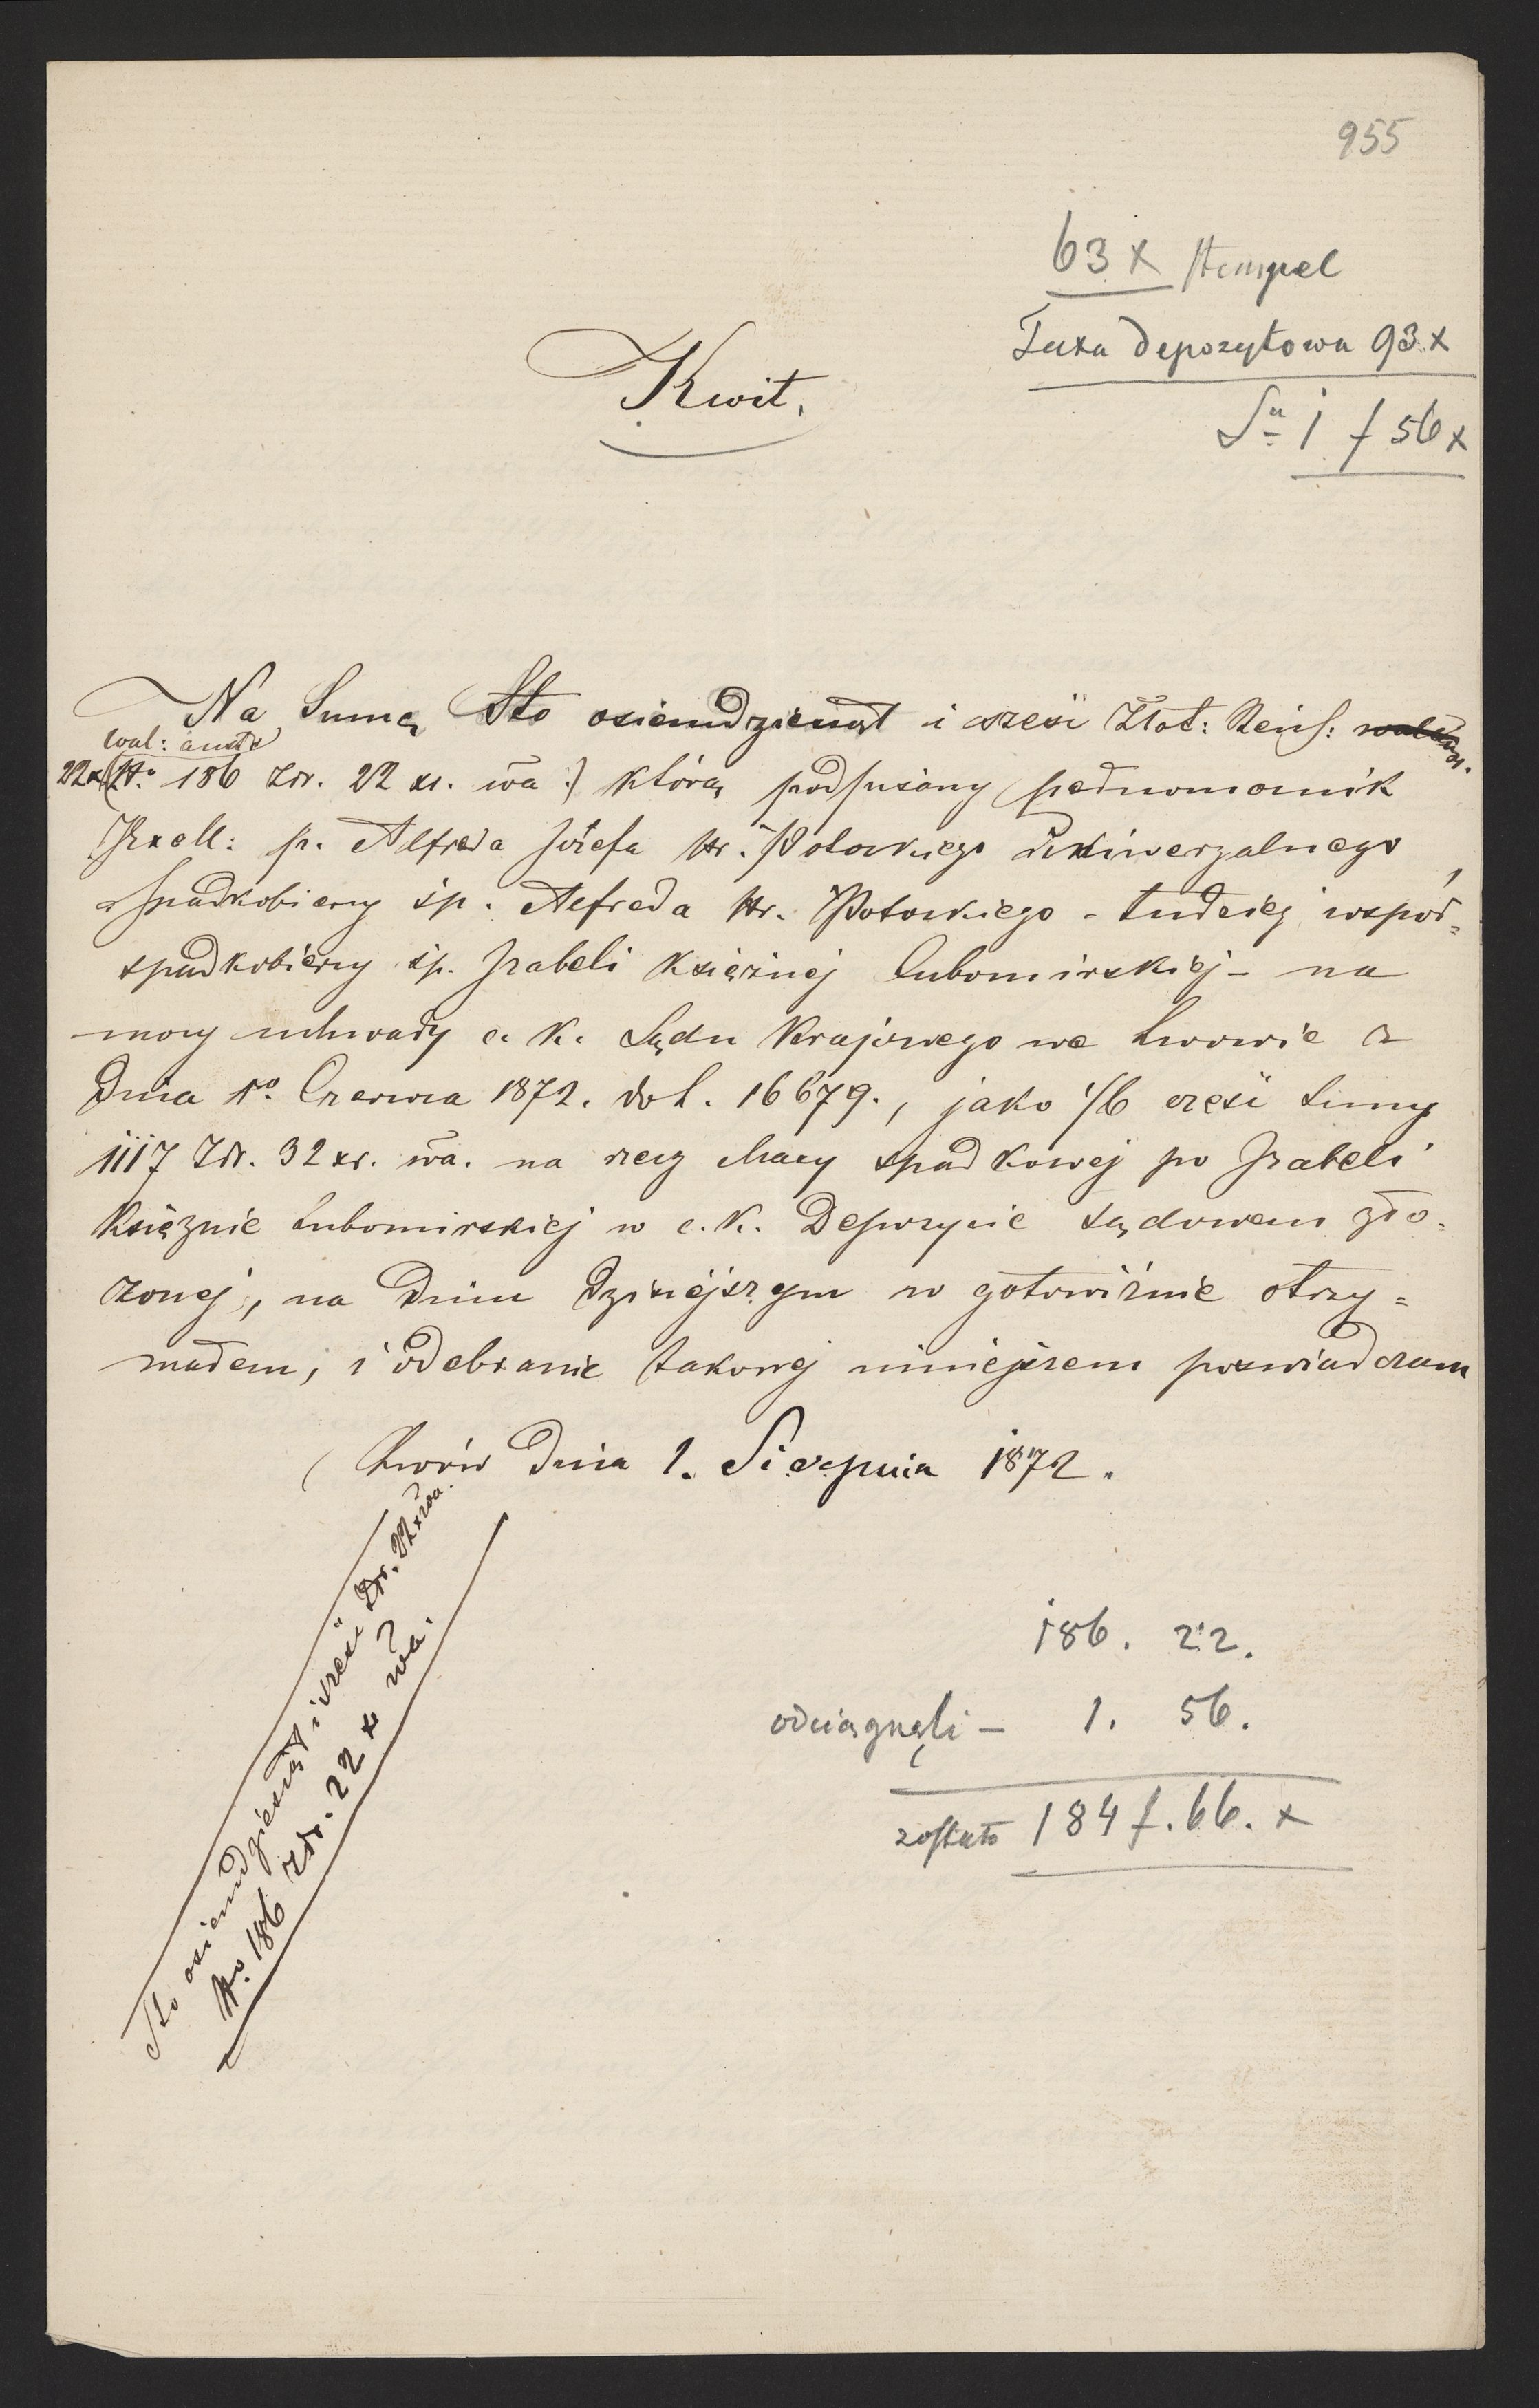 955
63 x stempel
Taxa depozytowa 93 x
Sa 1 f 56 x
Kwit.
Na Sumę Sto osiemdziesiąt i sześć Złot: Reńs:
wal: austr
22x (Nro 186 Złr. 22 xr. wa :) którą podpisany pełnomocnik
Exell: p. Alfreda Józefa hr. Potockiego uniwerzalnego
spadkobiercy śp. Alfreda Hr. Potockiego - tudzież współ=
spadkobiercy śp. Izabeli Księżnej Lubomirskiej - na
mocy uchwały c. k. Sądu Krajowego we Lwowie z
Dnia 1o. Czerwca 1872. do L. 16679., jako 1/6 część Sumy
1117 Złr. 32 xr. wa. na rzecz Masy spadkowej po Izabeli
Księżnie Lubomirskiej w c. k. Depozycie sądowem zło=
żonej, na dniu dzisiejszym w gotowiźnie otrzy=
małem, i odebranie takowej niniejszem poświadczam
Lwów Dnia 1. Sierpnia 1872.
Sto osiemdziesiąt i sześć Złr. 22 x wa.
Nro 186 Złr. 22 x wa.
186. 22.
odciągnęli - 1. 56.
zostało 184 f. 66. x